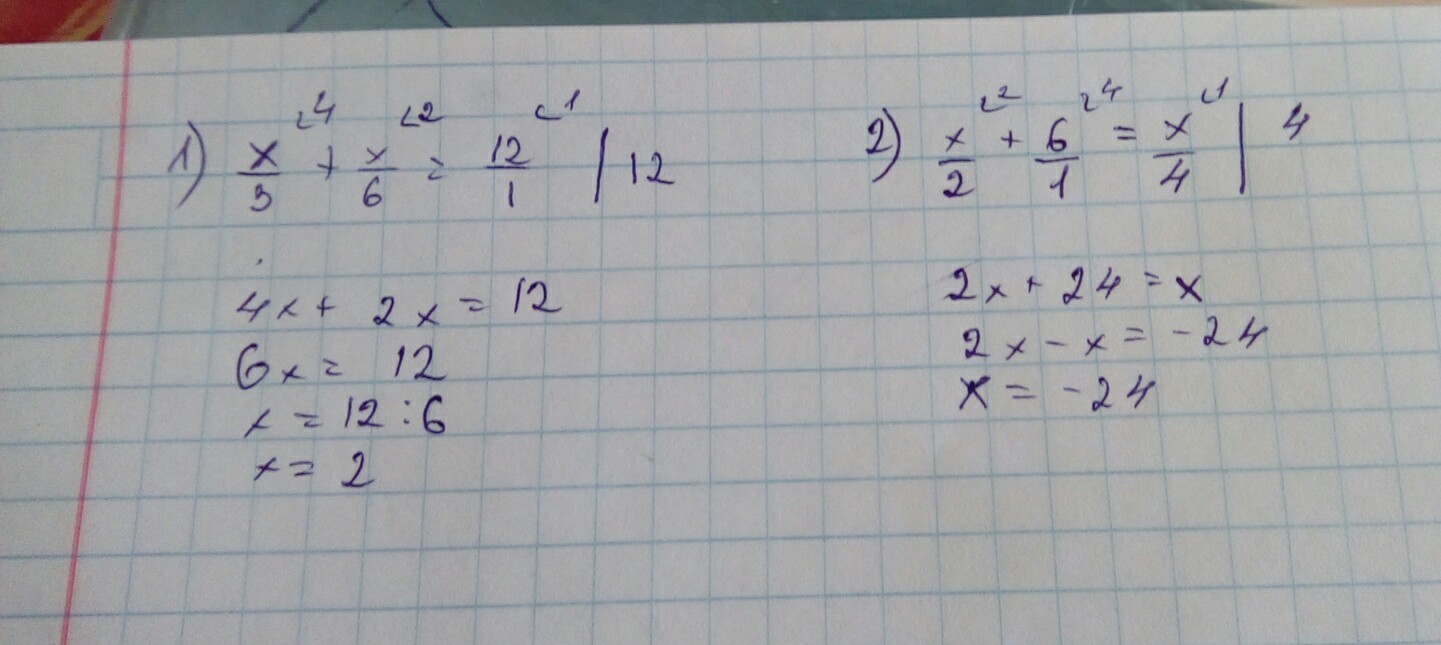 1) x/3 ⌞4 + x/6 ⌞2 = 12/1 ⌞1 | 12
4x + 2x = 12
6x = 12
x = 12 : 6
x = 2
2) x/2 ⌞2 + 6/1 ⌞4 = x/4 ⌞1 | 4
2x + 24 = x
2x - x = -24
x = -24